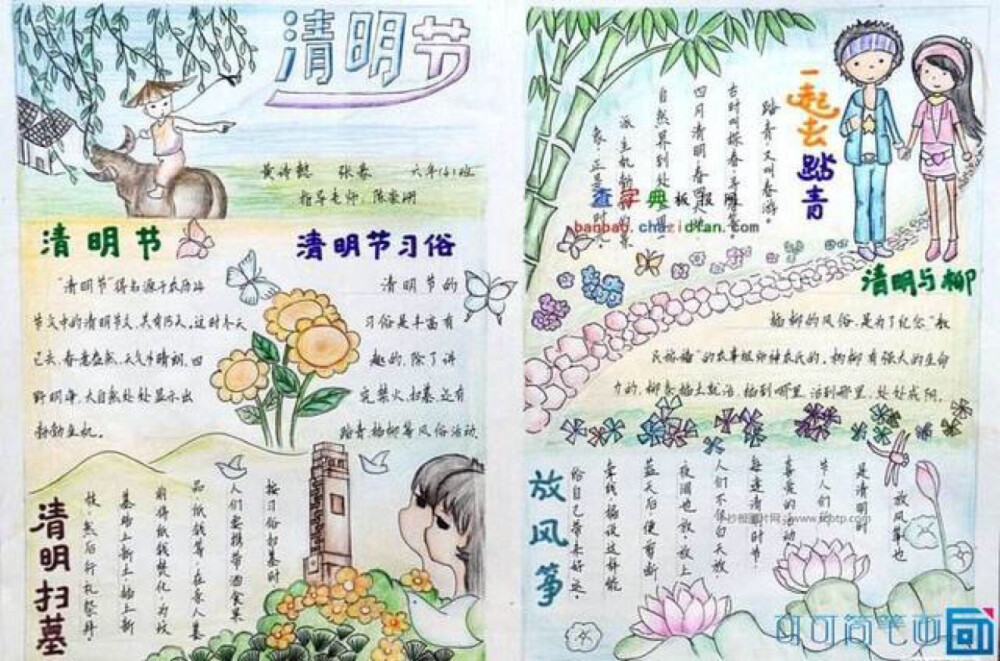 清明节
六年(6)班
指导老师:陈
清明节
清明节习俗
"清明节"得名源于农历24
节气中的清明节气,共有15天。这时冬天
已去,春意盎然,天气晴朗,四
野明净,大自然处处显示出
勃勃生机。
清明节的
习俗是丰富有
趣的,除了讲
究禁火、扫墓,还有
踏青、插柳等风俗活动
清明扫墓
按习俗扫墓时
人们要携带酒食果
品、纸钱等,在亲人墓
前将纸钱焚化,为坟
墓培上新土,插上新
枝,然后行礼祭拜
一起去踏青
踏青,又叫春游。
古时叫探春、寻春等。
四月清明,春回大地
自然界到处
派生机勃勃的景
象,正是
时
查字典板报网
banbao.chazidian.com
清明与柳
插柳的风俗,是为了纪念"教
民稼穑"的农事祖师神农氏的。柳有强大的生命
力的,柳条插土就活,插到哪里,活到哪里,处处成阴。
放风筝
放风筝也
是清明时
节人们
喜爱的活动
每逢清明时节,
人们不仅白天放,
夜间也放。放上
蓝天后,便剪断
牵线,据说这样能
给自己带来好运。
可可简笔画